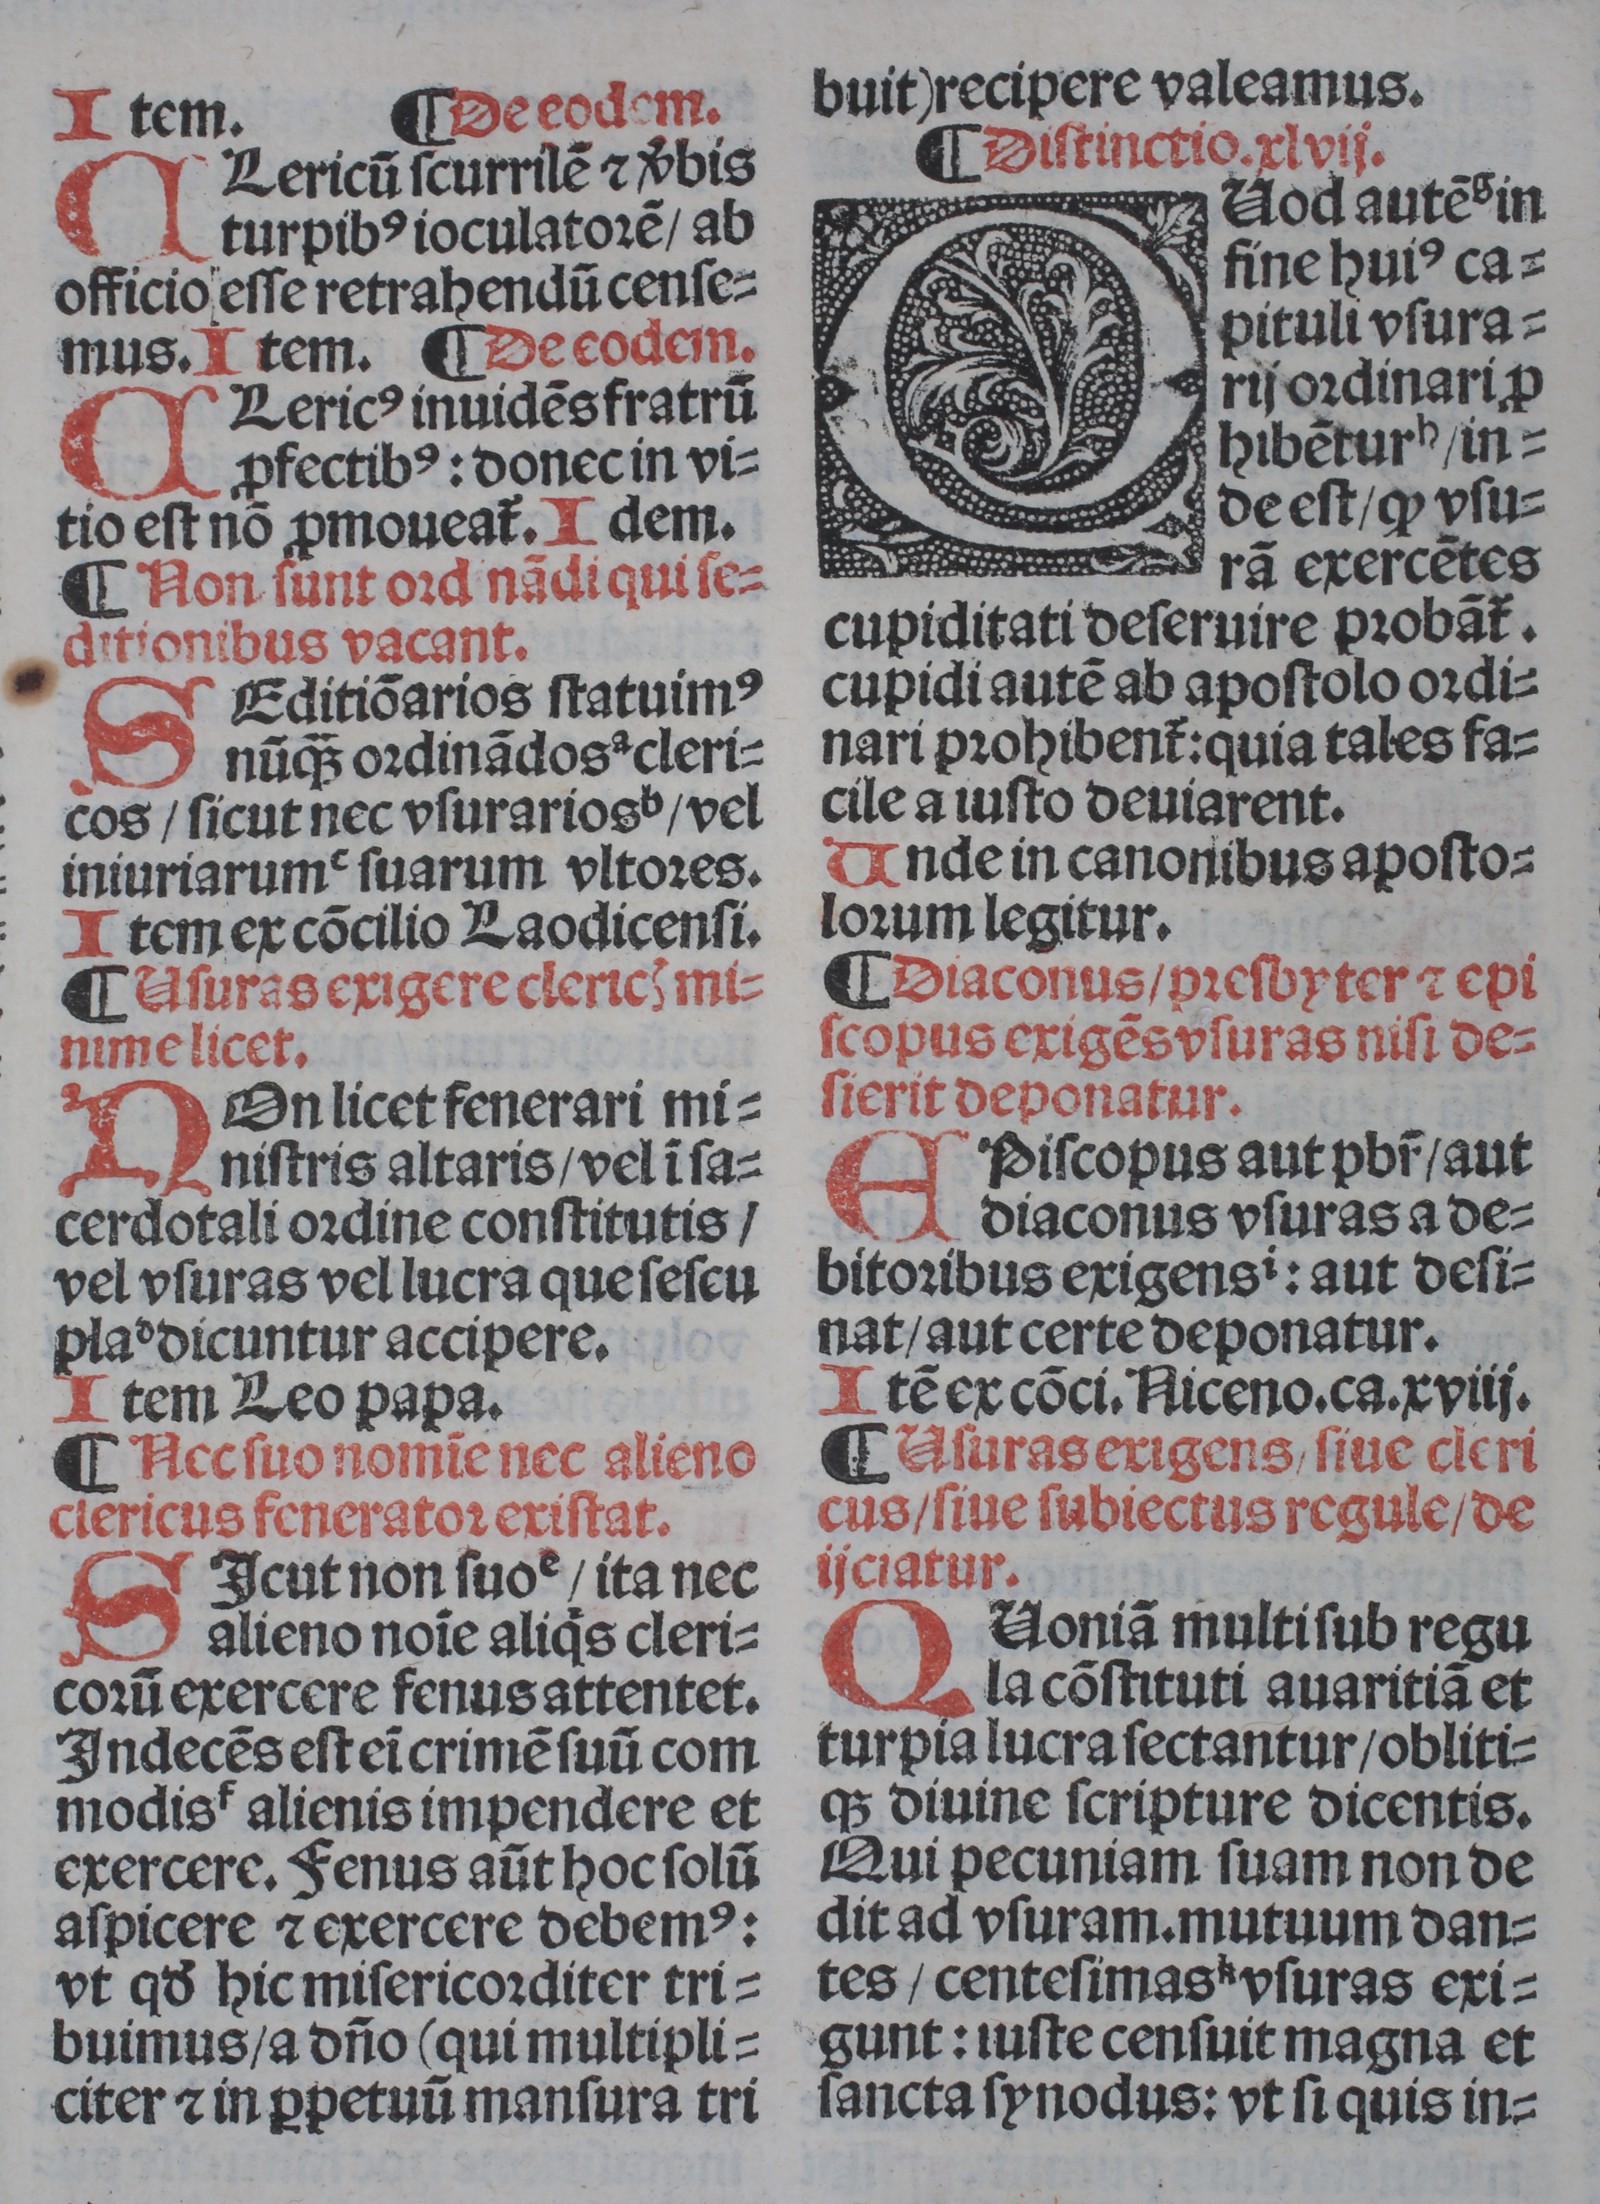 Item. ¶ De eodem.
CLericū ſcurrilē ⁊ v̉bis
turpibꝰ ioculatoꝛē/ ab
officio eſſe retrahendū cenſe⸗
mus. Item. ¶ De eodem.
CLericꝰ inuidēs fratrū
ꝓfectibꝰ: donec in vi⸗
tio eſt nō ꝓmoueat᷑. Idem.
¶ Non ſunt oꝛd nādi qui ſe⸗
ditionibus vacant.
SEditiōarios ſtatuimꝰ
nūꝗ̄ꝫ oꝛdinādosᵃ cleri⸗
cos/ ſicut nec vſurariosᵇ/ vel
iniuriarumᶜ ſuarum vltoꝛes.
Item ex cōcilio Laodicenſi.
¶ Uſuras exigere clericꝭ mi⸗
nime licet.
NOn licet fenerari mi⸗
niſtris altaris/ vel ī ſa⸗
cerdotali oꝛdine conſtitutis/
vel vſuras vel lucra que ſeſcu
plaᵈ dicuntur accipere.
Item Leo papa.
¶ Nec ſuo nomīe nec alieno
clericus feneratoꝛ exiſtat.
SIcut non ſuoᵉ/ ita nec
alieno noīe aliq̇s cleri⸗
coꝛū exercere fenus attentet.
Indecēs eſt eī crimē ſuū com
modisᶠ alienis impendere et
exercere. Fenus aūt hoc ſolū
aſpicere ⁊ exercere debemꝰ:
vt qď hic miſericoꝛditer tri⸗
buimus/ a dn̄o (qui multipli⸗
citer ⁊ in ꝑpetuū manſura tri
buit) recipere valeamus.
¶ Diſtinctio. xlvij.
QUod autēᵍ in
fine huiꝰ ca⸗
pituli vſura⸗
rij oꝛdinari ꝓ
hibēturʰ/ in⸗
de eſt/ ꝙ vſu⸗
rā exercētes
cupiditati deſeruire pꝛobāt᷑.
cupidi autē ab apoſtolo oꝛdi⸗
nari pꝛohibent᷑: quia tales fa⸗
cile a iuſto deuiarent.
Unde in canonibus apoſto⸗
loꝛum legitur.
¶ Diaconus/ pꝛeſbyter ⁊ epi
ſcopus exigēs vſuras niſi de⸗
ſierit deponatur.
EPiſcopus aut pbr̄/ aut
diaconus vſuras a de⸗
bitoꝛibus exigensⁱ: aut deſi⸗
nat/ aut certe deponatur.
Itē ex cōci. Niceno. ca. xviij.
¶ Uſuras exigens/ ſiue cleri
cus/ ſiue ſubiectus regule/ de
ijciatur.
QUoniā multi ſub regu
la cōſtituti auaritiā et
turpia lucra ſectantur/ obliti⸗
qꝫ diuine ſcripture dicentis.
Qui pecuniam ſuam non de
dit ad vſuram. mutuum dan⸗
tes/ centeſimasᵏ vſuras exi⸗
gunt: iuſte cenſuit magna et
ſancta ſynodus: vt ſi quis in⸗